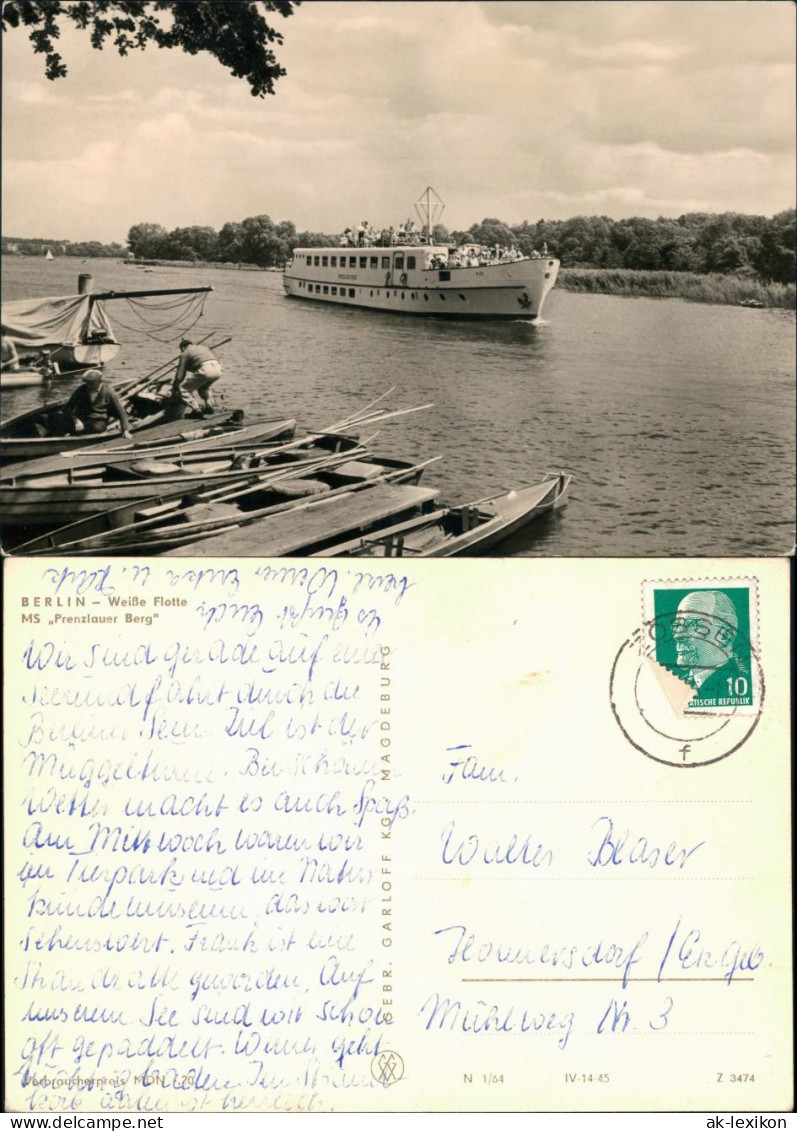 BERLIN – Weiße Flotte
MS „Prenzlauer Berg"
Wir sind gerade auf einer
Seerundfahrt durch die
Berliner Seen. Ziel ist der
Müggelturm. Bei schönem
Wetter macht es auch Spaß.
Am Mittwoch waren wir
im Tierpark und im Natur
kundemuseum, das war
sehenswert. Frank ist eine
Strandratte geworden. Auf
unserem See sind wir schon
oft gepaddelt. Werner geht
baden. Im Strand
korb ist herrlich.
Es grüßt Euch
Werner Erika u. Frank
Verbraucherpreis MDN –,20
GEBR. GARLOFF KG, MAGDEBURG
10
ATISCHE REPUBLIK
f
Fam.
Walter Blaser
Hormersdorf / Erzgeb.
Mühlweg Nr. 3
N 1/64
IV-14-45
Z 3474
ak-lexikon